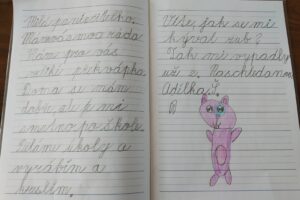 Milá paní učitelko,
Mám vás moc ráda.
Mám pro vás
velké překvapko.
Doma se mám
dobře ale je mi
smutno po škole.
Dělám úkoly a
vyrábím a
kreslím.
Víte, jak se mi
kýval zub?
Tak mi vypadly
už 2. Naschledanou
Adélka